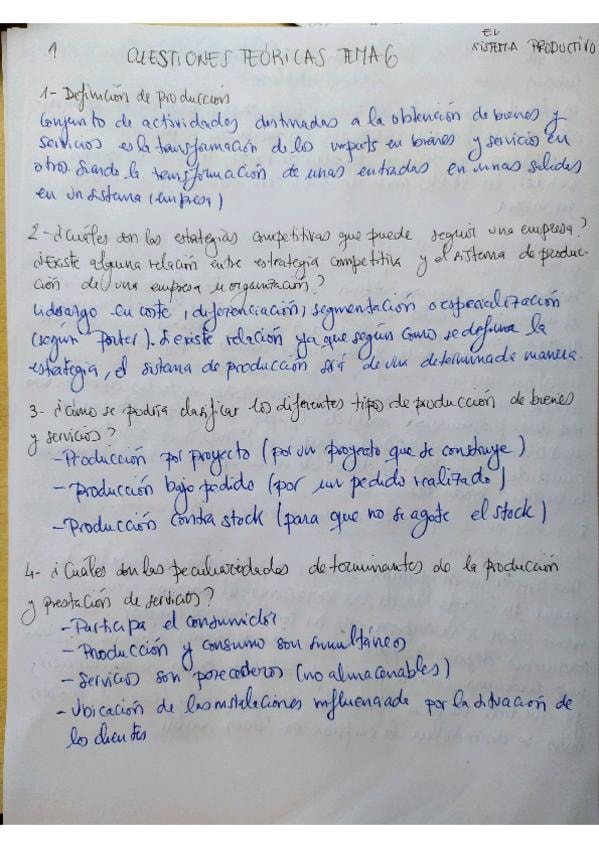 1
CUESTIONES TEÓRICAS TEMA 6
EL
SISTEMA PRODUCTIVO
1- Definición de producción
Conjunto de actividades destinadas a la obtención de bienes y
servicios es la transformación de los imputs en bienes y servicios en
otros. Siendo la transformación de unas entradas en unas salidas
en un sistema (empresa)
2- ¿Cuáles son las estrategias competitivas que puede seguir una empresa?
¿Existe alguna relación entre estrategia competitiva y el sistema de produc-
ción de una empresa u organización?
Liderazgo en coste, diferenciación, segmentación o especialización
(según Porter). Si existe relación ya que según como se defina la
estrategia, el sistema de producción será de una determinada manera.
3- ¿Cómo se podría clasificar los diferentes tipos de producción de bienes
y servicios?
- Producción por proyecto (por un proyecto que se construye)
- Producción bajo pedido (por un pedido realizado)
- Producción contra stock (para que no se agote el stock)
4- ¿Cuáles son las peculiaridades determinantes de la producción
y prestación de servicios?
- Participa el consumidor
- Producción y consumo son simultáneos
- Servicios son perecederos (no almacenables)
- Ubicación de las instalaciones influenciada por la situación de
los clientes